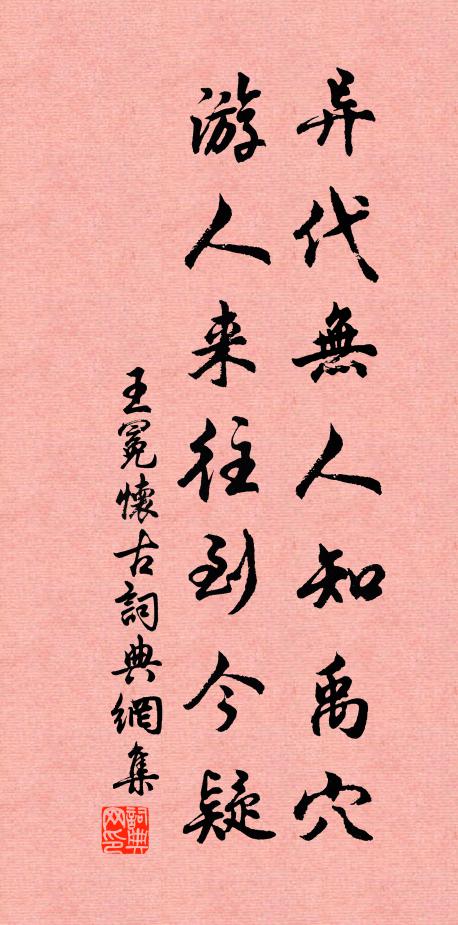 异代無人知禹穴
游人来往到今疑
王冕懷古詞典網集
詞典
网印